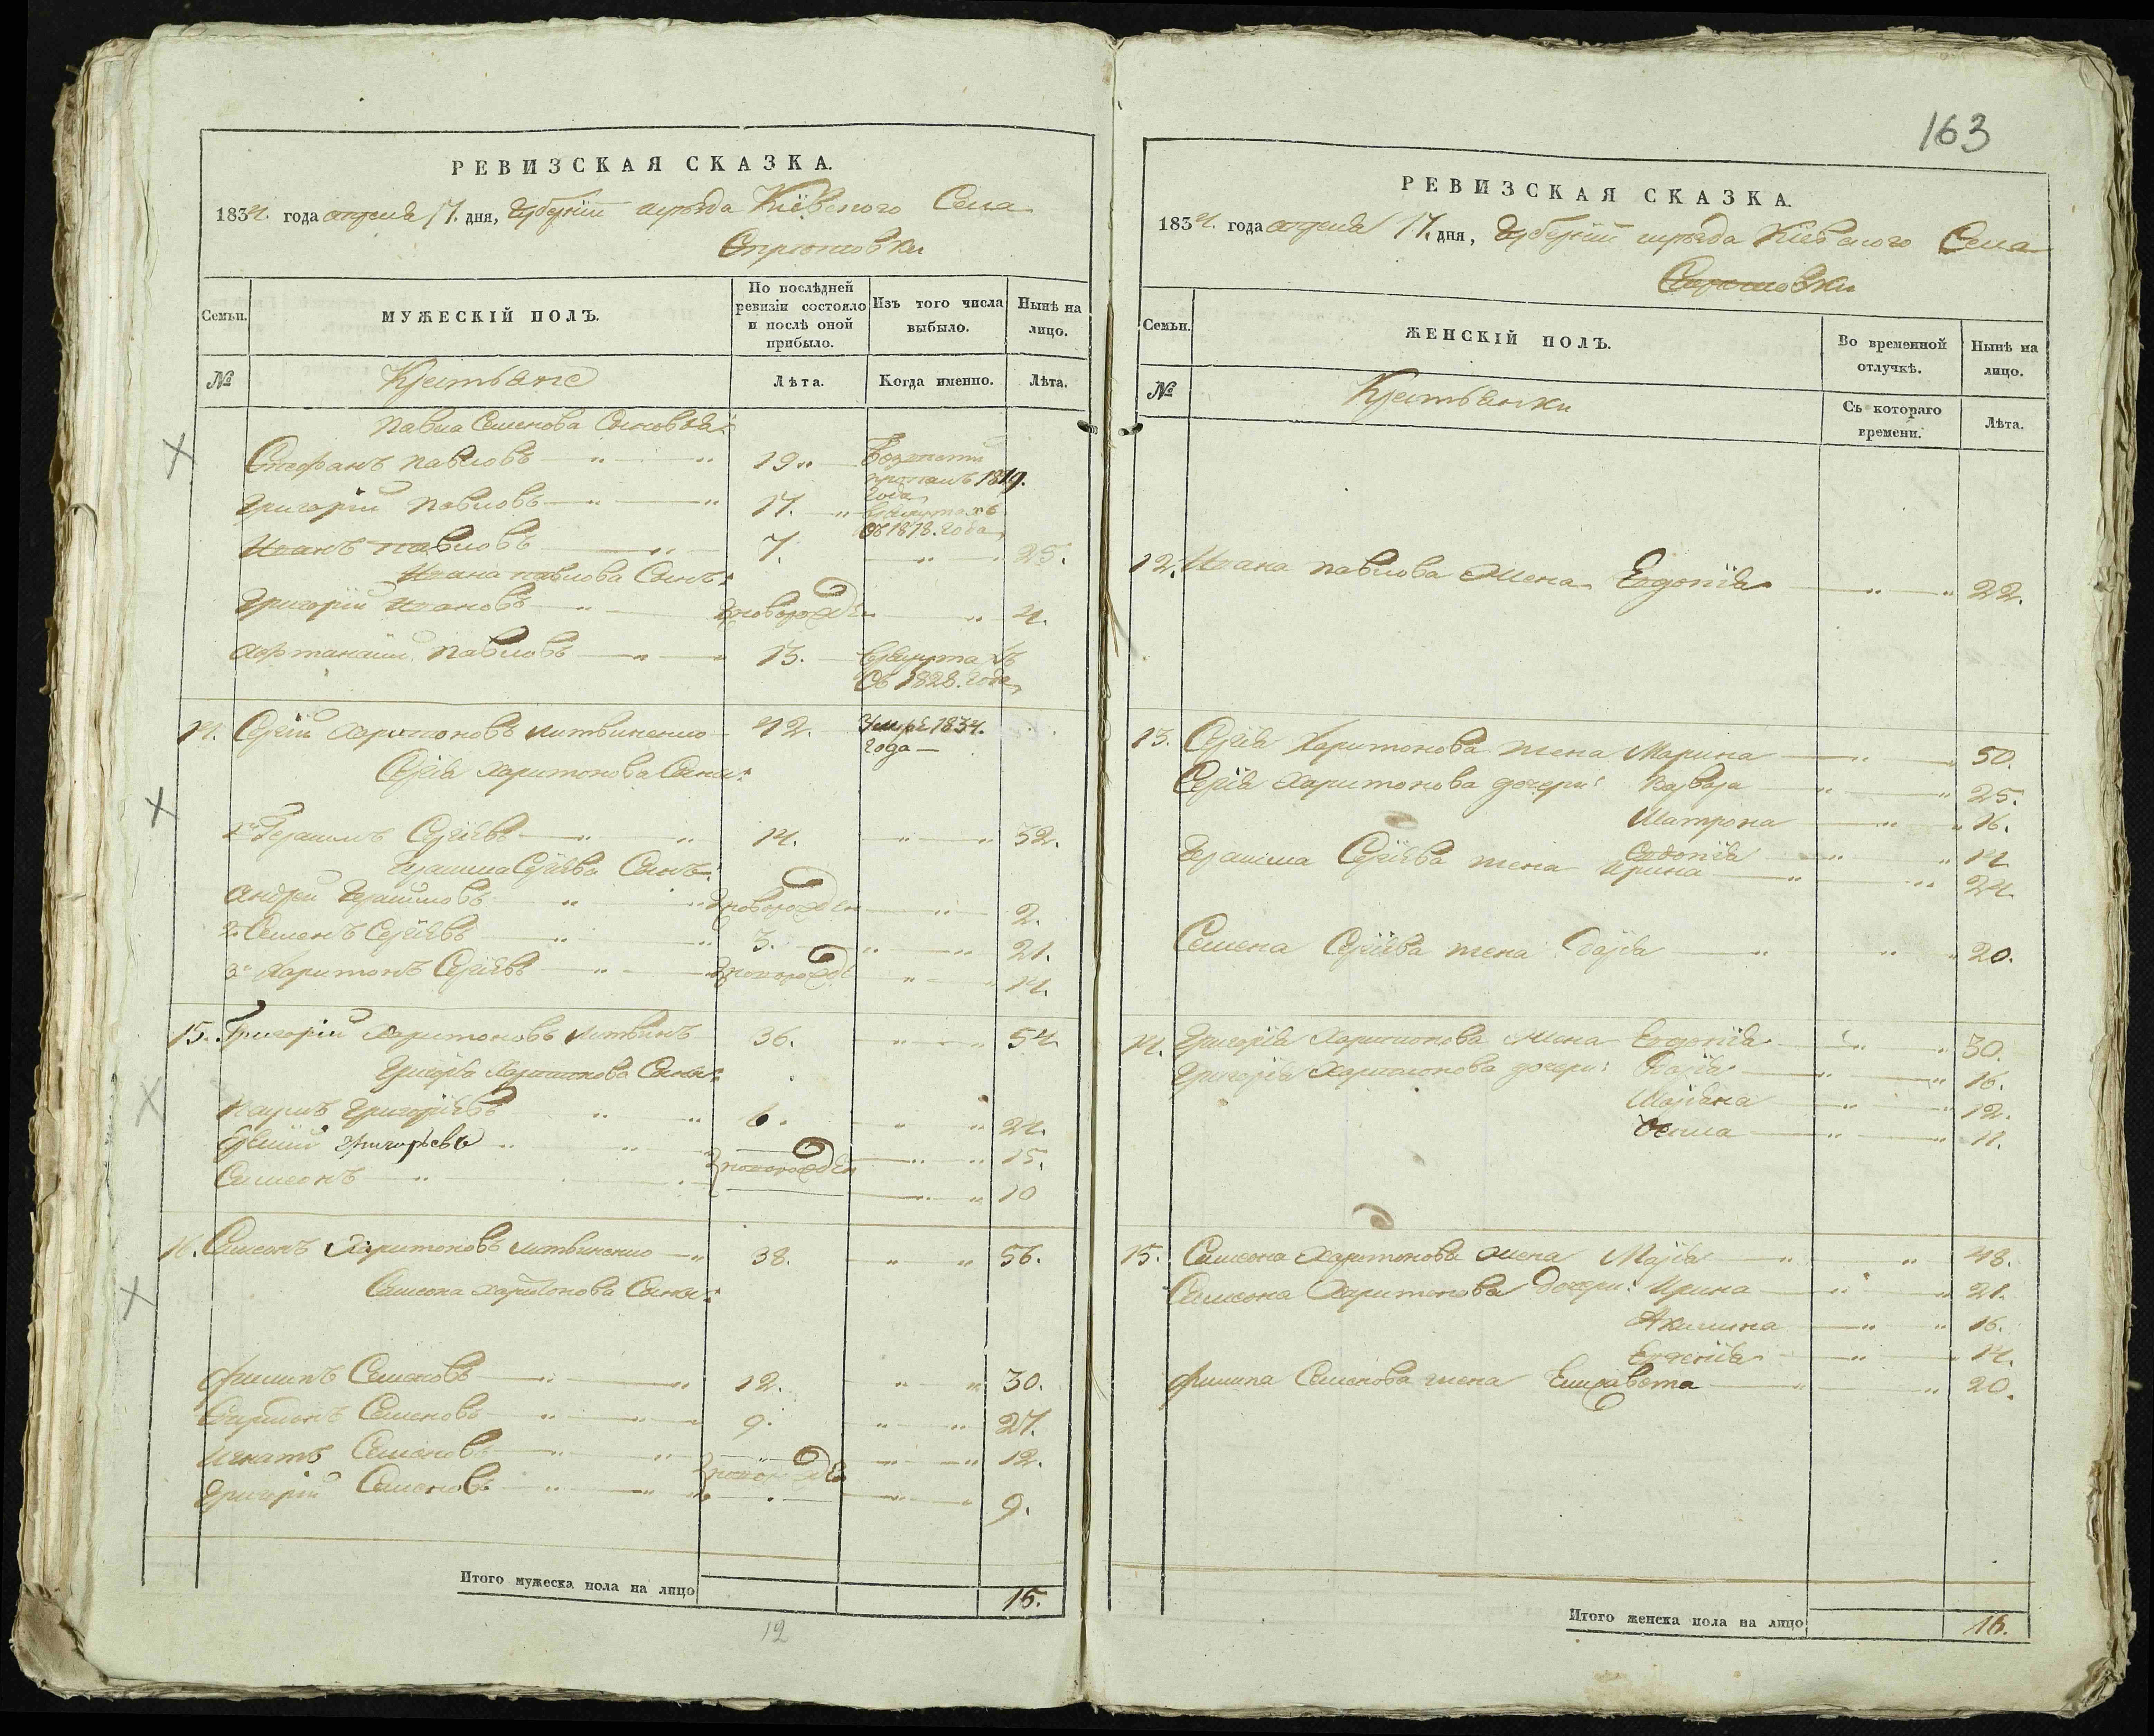 163
РЕВИЗСКАЯ СКАЗКА.
1834. года апреля 17. дня, Губернии и уезда Кіевского Села
МУЖЕСКІЙ ПОЛЪ.
Семьи.
По послѣдней ревизіи состояло и послѣ оной прибыло.
Изъ того числа выбыло.
Нынѣ на лицо.
№
Крестьяне
Лѣта.
Когда именно.
Лѣта.
Павла Семенова Сыновья:
Стефанъ Павловъ 19 1819. года
Григорій Павловъ 17. врекрутахъ съ 1818. года
Иванъ Павловъ 7. 25.
Ивана Павлова Сынъ:
Григорій Ивановъ новорожден 4.
Афтанасій Павловъ 13. врекрутахъ Съ 1828. года
14. Сергій Харитоновъ Литвиненко 42. Умре 1834. года
Сергія Харитонова Сыны:
1й Герасимъ Сергіевъ 14. 32.
Герасима Сергіева Сынъ:
Андрей Герасимовъ новорожден 2.
2. Семенъ Сергіевъ 3. 21.
3й Харитонъ Сергіевъ новорожде 14.
15. Григорій Харитоновъ Литвинъ 36. 54.
Григорія Харитонова Сыны:
Наумъ Григоріевъ 6. 24.
Григорьевъ новорожден 15.
Симеонъ 10
16. Симеонъ Харитоновъ Литвиненко 38. 56.
Симеона Харитонова Сыны:
Филипъ Семеновъ 12. 30.
Спиридонъ Семеновъ 9. 27.
Игнатъ Семеновъ новорожден 12.
Григорій Семеновъ 9.
Итого мужеска пола на лицо 15.
12
РЕВИЗСКАЯ СКАЗКА.
1834. года апреля 17. дня, Губернии и уезда Кіевского Села
Семьи.
ЖЕНСКІЙ ПОЛЪ.
Во временной отлучкѣ.
Нынѣ на лицо.
№
Крестьянки
Съ котораго времени.
Лѣта.
12. Ивана Павлова Жена Евдокія 22.
13. Сергія Харитонова жена Марина 50.
Сергія Харитонова дочери: Варвара 25.
Матрона 16.
Евдокія 14
Герасима Сергіева жена Ирина 24.
Семена Сергіева жена Дарія 20.
14. Григорія Харитонова Жена Евдокія 30.
Григорія Харитонова дочери: Дарія 16.
Маріяна 12.
11.
15. Симеона Харитонова Жена Марія 48.
Симеона Харитонова Дочери: Ирина 21.
Акилина 16.
Евдокія 14.
Филипа Семенова жена Елизавета 20.
Итого женска пола на лицо 16.